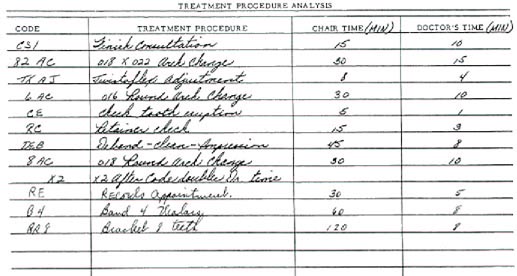 TREATMENT PROCEDURE ANALYSIS
CODE TREATMENT PROCEDURE CHAIR TIME (MIN) DOCTOR'S TIME (MIN)
CS1 Finish Consultation 15 10
82 AC 018 X 022 Arch Change 30 15
TX AJ Twistaflex Adjustment 8 4
6 AC 016 Round Arch Change 30 10
CE Check tooth eruption 5 1
RC Retainer check 15 3
DEB Deband-clean-Impression 45 8
8 AC 018 Round Arch Change 30 10
X2 X2 After Code doubles Dr. time
RE Records Appointment. 30 5
B4 Band 4 60 8
8 teeth 120 8